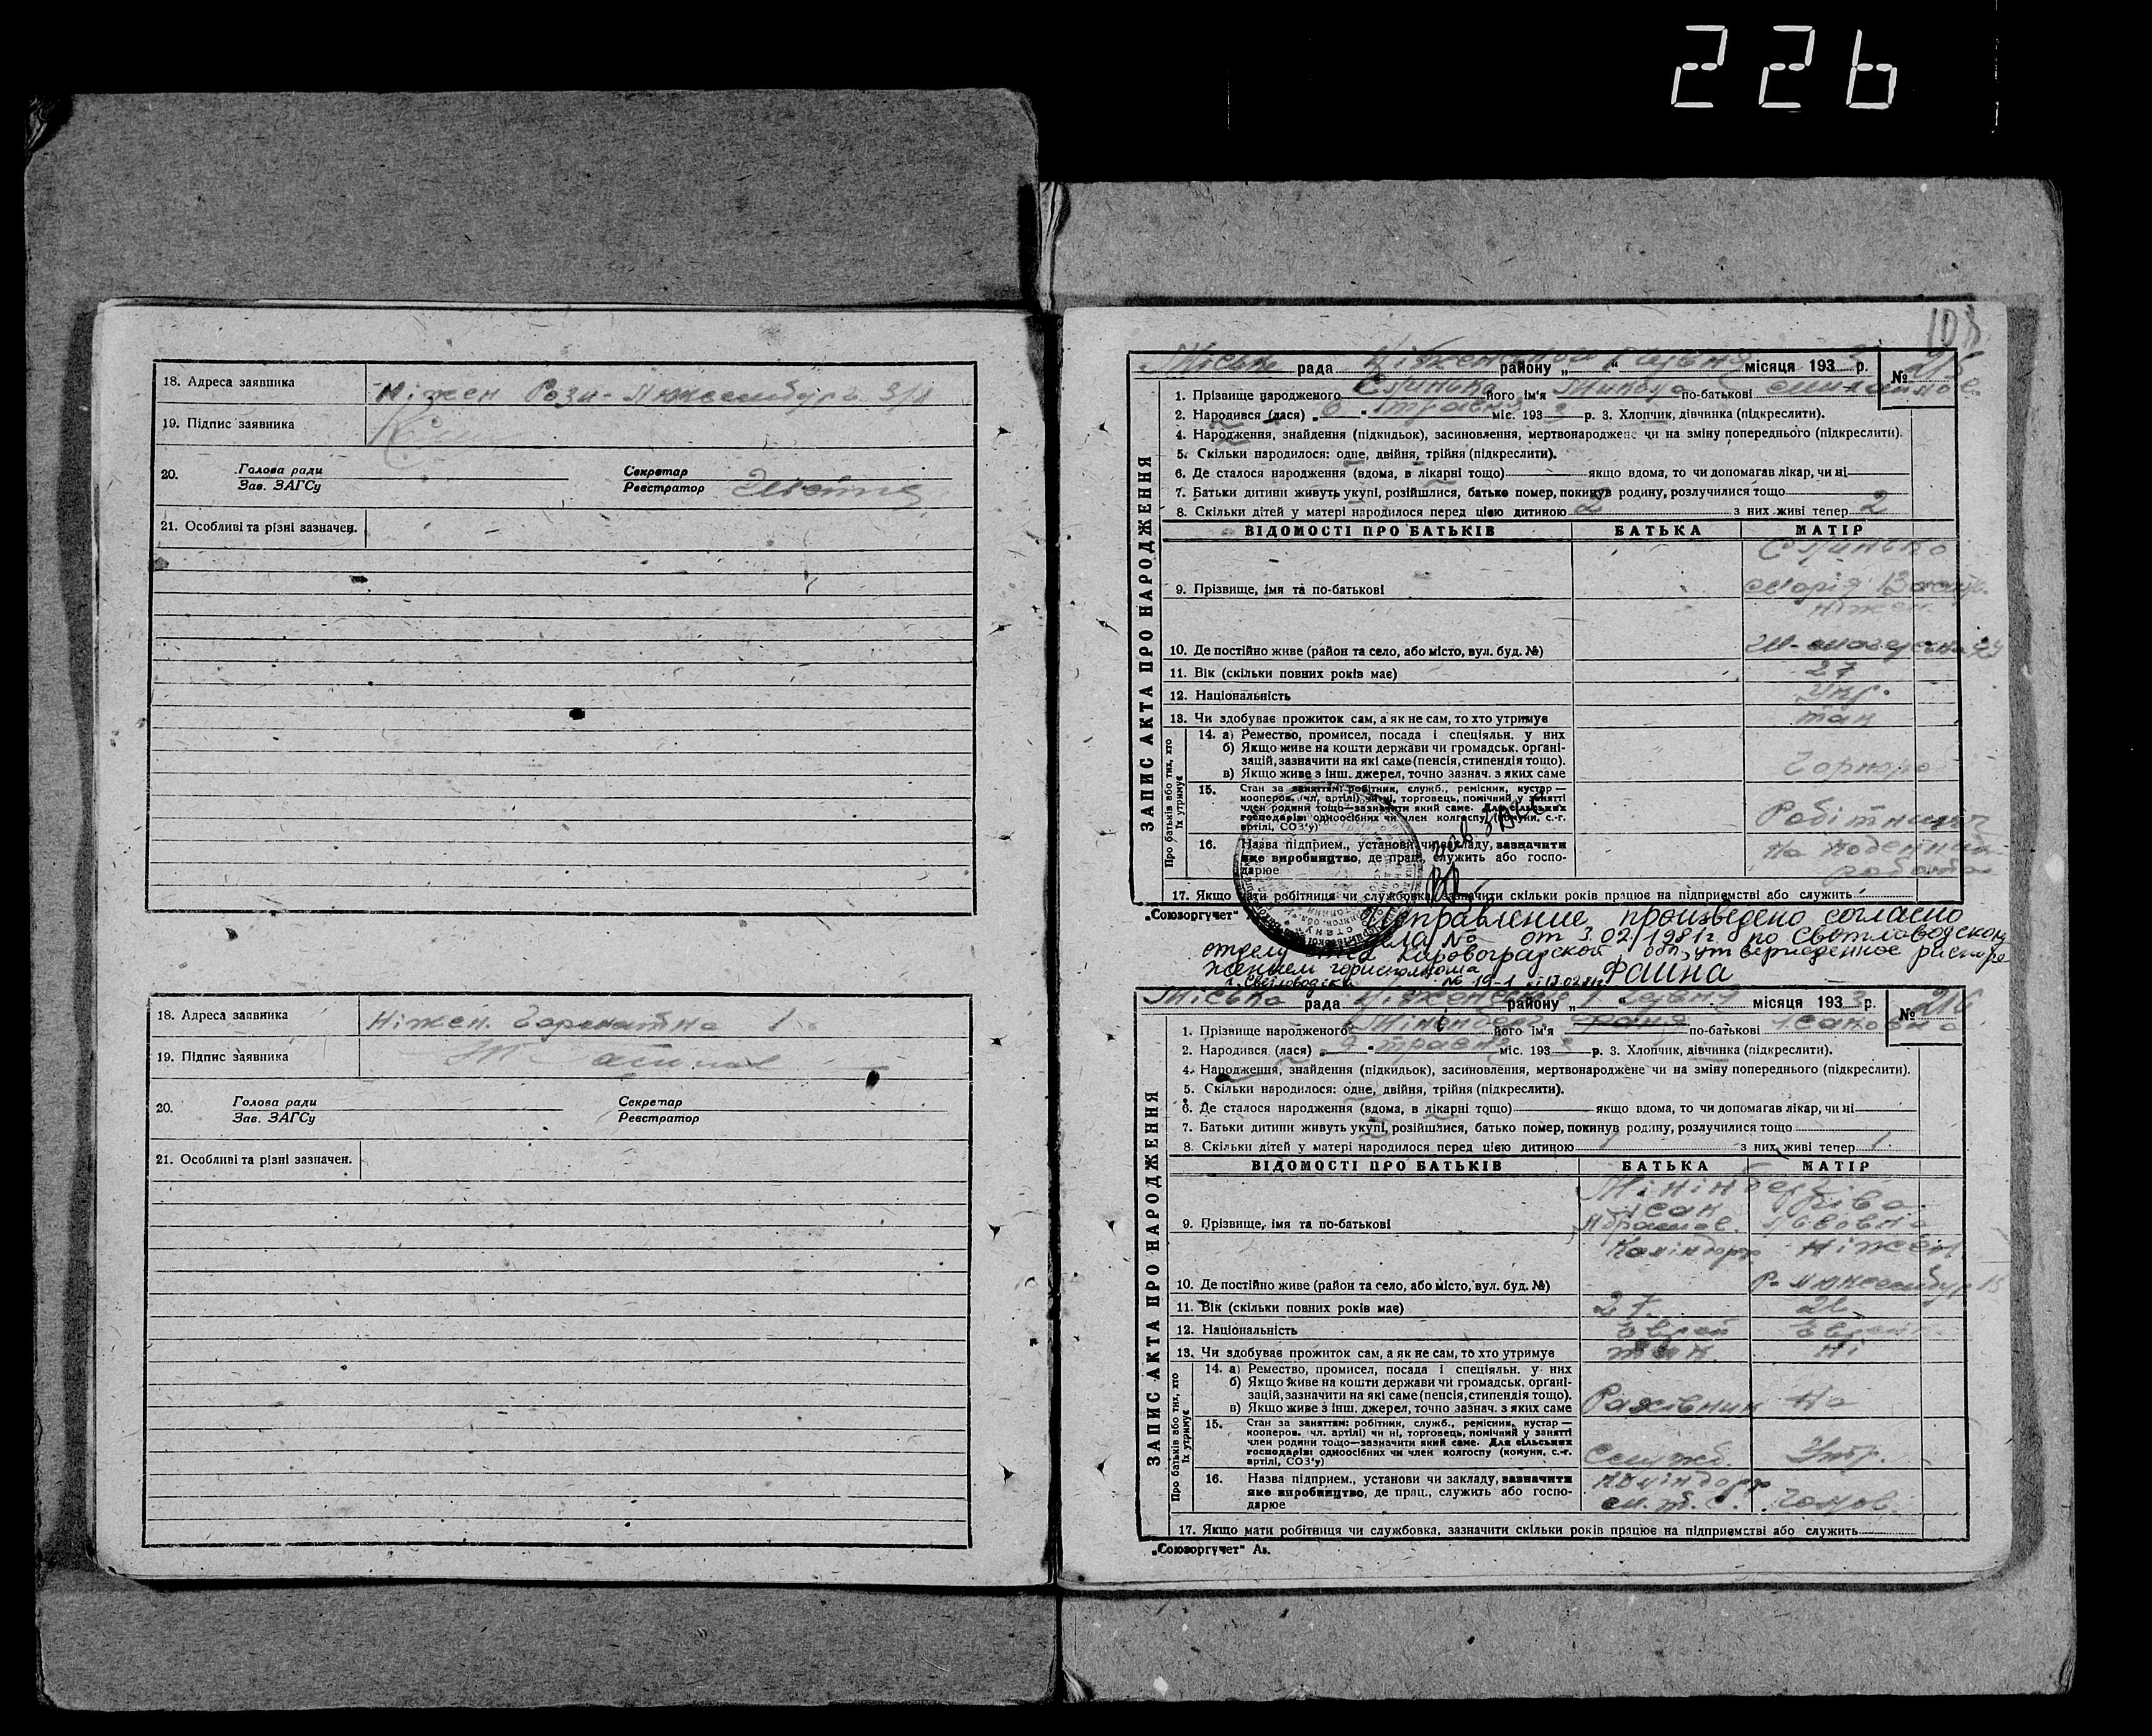 226
18. Адреса заявника Ніжен Рози-Люксембург 3/1
19. Підпис заявника
20. Голова ради
Зав. ЗАГСу
Секретар
Реєстратор
21. Особливі та різні зазначен.
18. Адреса заявника Ніжен.
19. Підпис заявника
20. Голова ради
Зав. ЗАГСу
Секретар
Реєстратор
21. Особливі та різні зазначен.
108
ЗАПИС АКТА ПРО НАРОДЖЕННЯ
Міська рада Ніженського району „ 1 “ червня місяця 1933 р. № 215
1. Прізвище народженого його ім'я Микола по-батькові
2. Народився (лася) „6“ травня міс. 1933 р. 3. Хлопчик, дівчинка (підкреслити).
4. Народження, знайдення (підкидьок), засиновлення, мертвонароджене чи на зміну попереднього (підкреслити).
5. Скільки народилося: одне, двійня, трійня (підкреслити).
6. Де сталося народження (вдома, в лікарні тощо) якщо вдома, то чи допомагав лікар, чи ні
7. Батьки дитини живуть укупі, розійшлися, батько помер, покинув родину, розлучилися тощо
8. Скільки дітей у матері народилося перед цією дитиною 2 з них живі тепер 2
ВІДОМОСТІ ПРО БАТЬКІВ БАТЬКА МАТІР
9. Прізвище, імя та по-батькові
Марія
Ніжен
10. Де постійно живе (район та село, або місто, вул. буд. №)
11. Вік (скільки повних років має) 27
12. Національність Укр.
13. Чи здобуває прожиток сам, а як не сам, то хто утримує так
Про батьків або тих, хто їх утримує
14. а) Ремество, промисел, посада і спеціяльн. у них
б) Якщо живе на кошти держави чи громадськ. органі-
зацій, зазначити на які саме (пенсія, стипендія тощо).
в) Якщо живе з інш. джерел, точно зазнач. з яких саме Чорнор
15. Стан за заняттям: робітник, служб., ремісник, кустар —
кооперов. (чл. артілі) чи ні, торговець, помічний у занятті
член родини тощо—зазначити який саме. Для сільських
господарів: одноосібних чи член колгоспу (комуни, с.-г.
артілі, СОЗ'у) Робітниця
16. Назва підприєм., установи чи закладу, зазначити
яке виробництво, де прац., служить або госпо-
дарює
На поденний
робота
17. Якщо мати робітниця чи службовка, зазначити скільки років працює на підприємстві або служить
„Союзоргучет“
Исправление произведено согласно
дела № от 3.02.1981г. по Светловодскому
отделу загса Кировоградской обл, утвержденное распоря
жением горисполкома
г. Светловодска № 19-1 Фаина
ЗАПИС АКТА ПРО НАРОДЖЕННЯ
Міська рада Ніженського району „ 1 “ червня місяця 1933 р. № 216
1. Прізвище народженого Мінінберг його ім'я Фаня по-батькові Ісаковна
2. Народився (лася) „9“ травня міс. 1933 р. 3. Хлопчик, дівчинка (підкреслити).
4. Народження, знайдення (підкидьок), засиновлення, мертвонароджене чи на зміну попереднього (підкреслити).
5. Скільки народилося: одне, двійня, трійня (підкреслити).
6. Де сталося народження (вдома, в лікарні тощо) якщо вдома, то чи допомагав лікар, чи ні
7. Батьки дитини живуть укупі, розійшлися, батько помер, покинув родину, розлучилися тощо
8. Скільки дітей у матері народилося перед цією дитиною 1 з них живі тепер 1
ВІДОМОСТІ ПРО БАТЬКІВ БАТЬКА МАТІР
Мінінберг
Ісак Ріва
9. Прізвище, імя та по-батькові Абрамов. Львовна
Каліндорф Ніжен
10. Де постійно живе (район та село, або місто, вул. буд. №) Р-Люксембург 15
11. Вік (скільки повних років має) 27
12. Національність Еврей Еврей
13. Чи здобуває прожиток сам, а як не сам, то хто утримує так. ні
Про батьків або тих, хто їх утримує
14. а) Ремество, промисел, посада і спеціяльн. у них
б) Якщо живе на кошти держави чи громадськ. органі-
зацій, зазначити на які саме (пенсія, стипендія тощо).
в) Якщо живе з інш. джерел, точно зазнач. з яких саме Рахівник На
15. Стан за заняттям: робітник, служб., ремісник, кустар —
кооперов. чл. артілі) чи ні, торговець, помічний у занятті
член родини тощо—зазначити який саме. Для сільських
господарів: одноосібних чи член колгоспу (комуни, с.-г.
артілі, СОЗ'у) Служб. Утр.
16. Назва підприєм., установи чи закладу, зазначити
яке виробництво, де прац., служить або госпо-
дарює
Каліндорф
м. т. с. Чолов.
17. Якщо мати робітниця чи службовка, зазначити скільки років працює на підприємстві або служить
„Союзоргучет“ Ав.